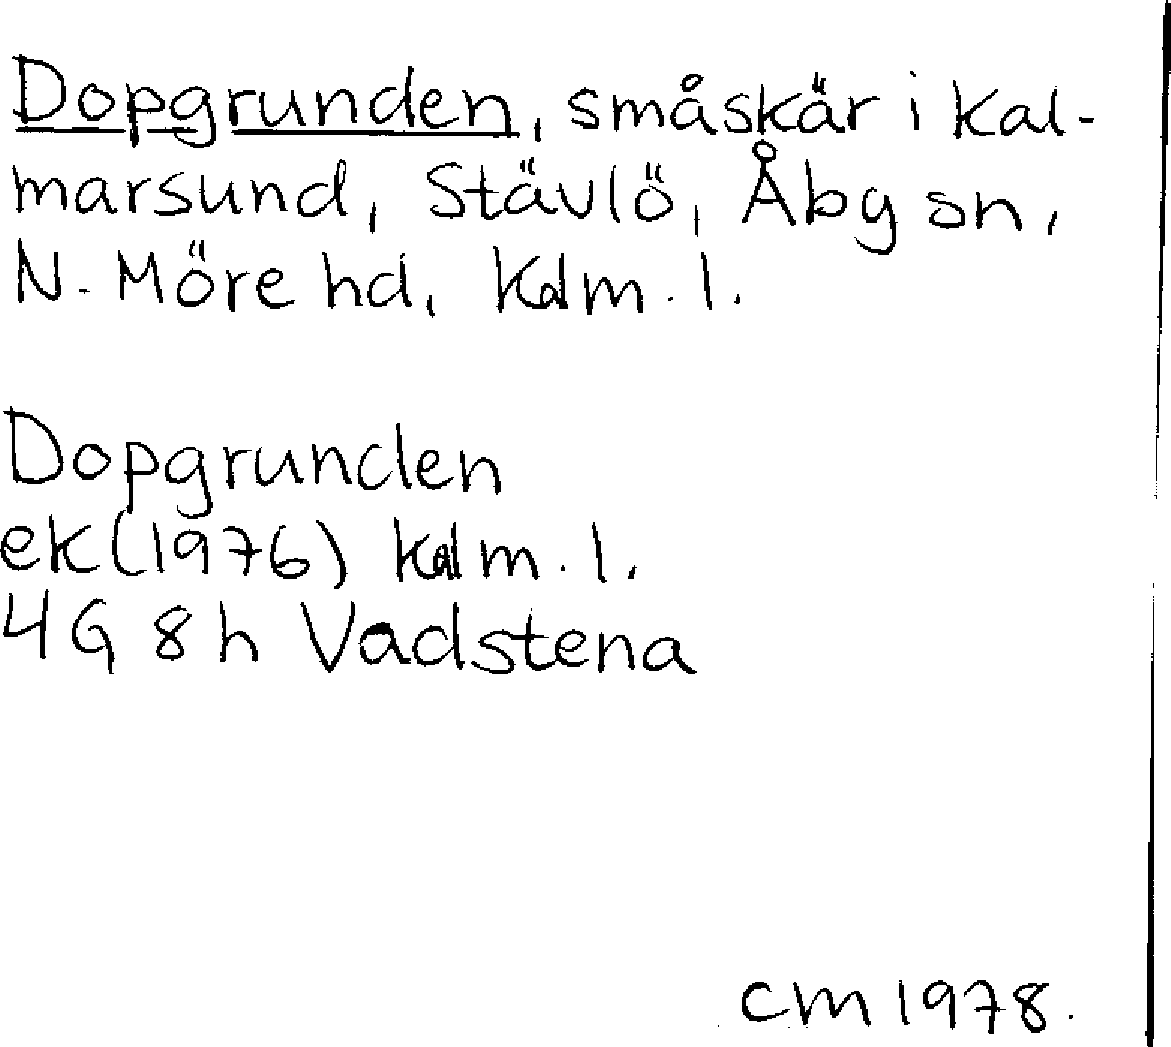 Dopgrunden, småskär i Kal-
marsund, Stävlö, Åby sn,
N. Möre hd, Kalm. l.
Dopgrunden
ek (1976) Kalm. l.
4G 8h Vadstena
CM 1978.